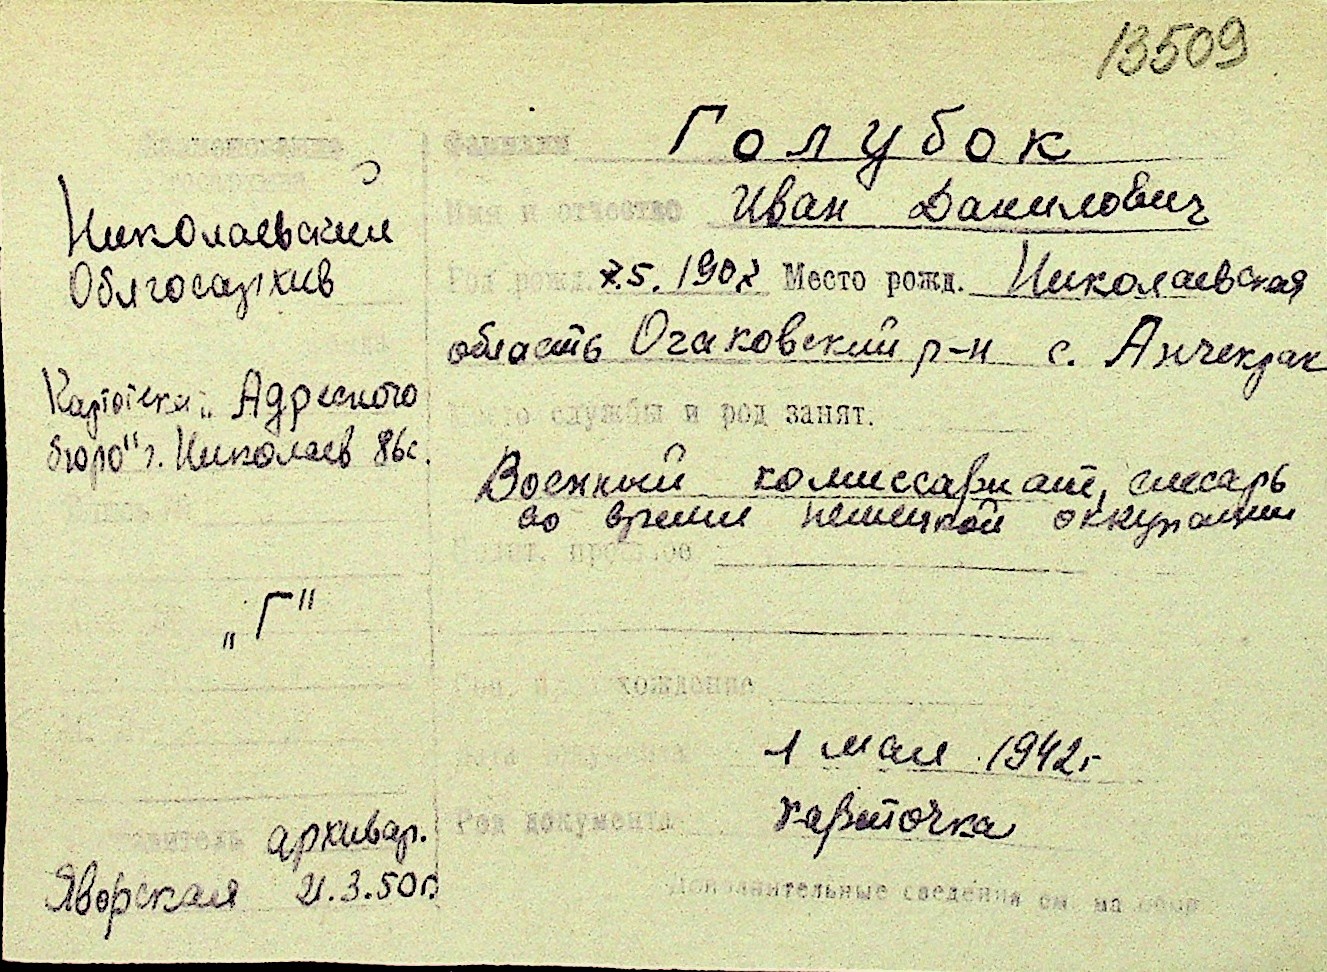 13509
Наименование
Фамилия Голубок
Николаевский
Облгосархив
Имя и отчество Иван Данилович
Год рожд. 7.5.1907 Место рожд. Николаевская
область Очаковский р-н с. Анчекрак
Картотека „Адресного
бюро" г. Николаев 86с.
Место службы и род занят.
Военный комиссариат, слесарь
во время немецкой оккупации
Полит. прошлое
„Г"
Соц. происхождение
Дата документа 1 мая 1942г
Род документа карточка
архивар.
Яворская 21.3.50г
Дополнительные сведения см. на обор.